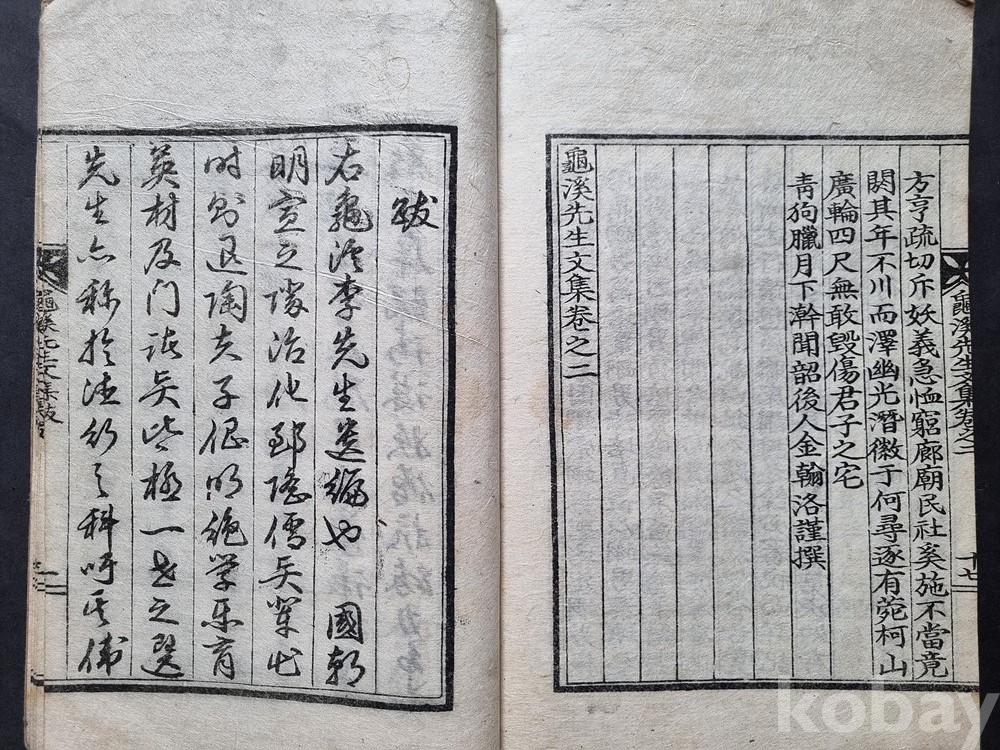 方亨疏切斥妖義急恤窮廊廟民社奚施不當竟
閼其年不川而澤幽光潛徽于何尋逐有菀柯山
廣輪四尺無敢毀傷君子之宅
靑狗臘月下澣聞韶後人金翰洛謹撰
龜溪先生文集卷之二
龜溪先生文集卷之二
十七
跋
右龜溪李先生遺編也 國朝
明宣之際治化郅隆儒先輩出
時則退陶夫子倡明絶學樂育
英材及門諸先皆極一世之選
先生亦稱於德行之科呼其偉
龜溪先生文集跋
一
kobay